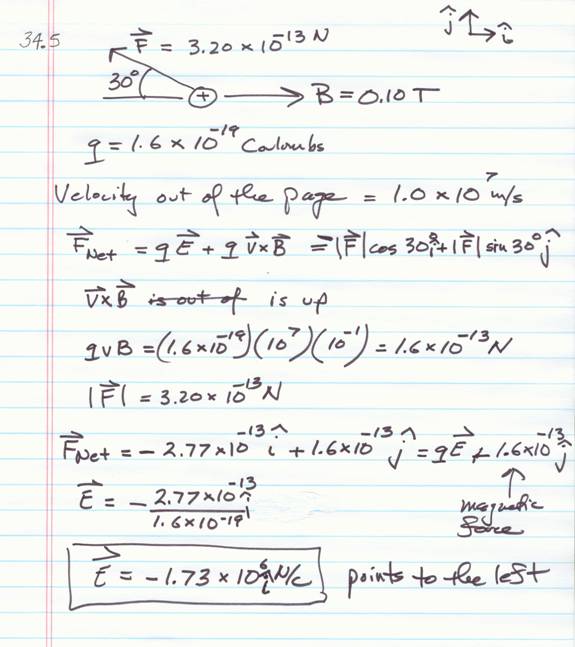 34.5
F⃗ = 3.20 × 10⁻¹³ N
ĵ î
30°
+ B = 0.10 T
q = 1.6 × 10⁻¹⁹ Coloumbs
Velocity out of the page = 1.0 × 10⁷ m/s
F⃗Net = qE⃗ + q v⃗×B⃗ = -|F⃗| cos 30° î + |F⃗| sin 30° ĵ
v⃗×B⃗ is out of is up
qvB = (1.6×10⁻¹⁹)(10⁷)(10⁻¹) = 1.6×10⁻¹³ N
|F⃗| = 3.20 × 10⁻¹³ N
F⃗Net = - 2.77×10⁻¹³ î + 1.6×10⁻¹³ ĵ = qE⃗ + 1.6×10⁻¹³ ĵ
E⃗ = - 2.77×10⁻¹³ î / 1.6×10⁻¹⁹
magnetic
force
E⃗ = -1.73 × 10⁶ î N/C points to the left